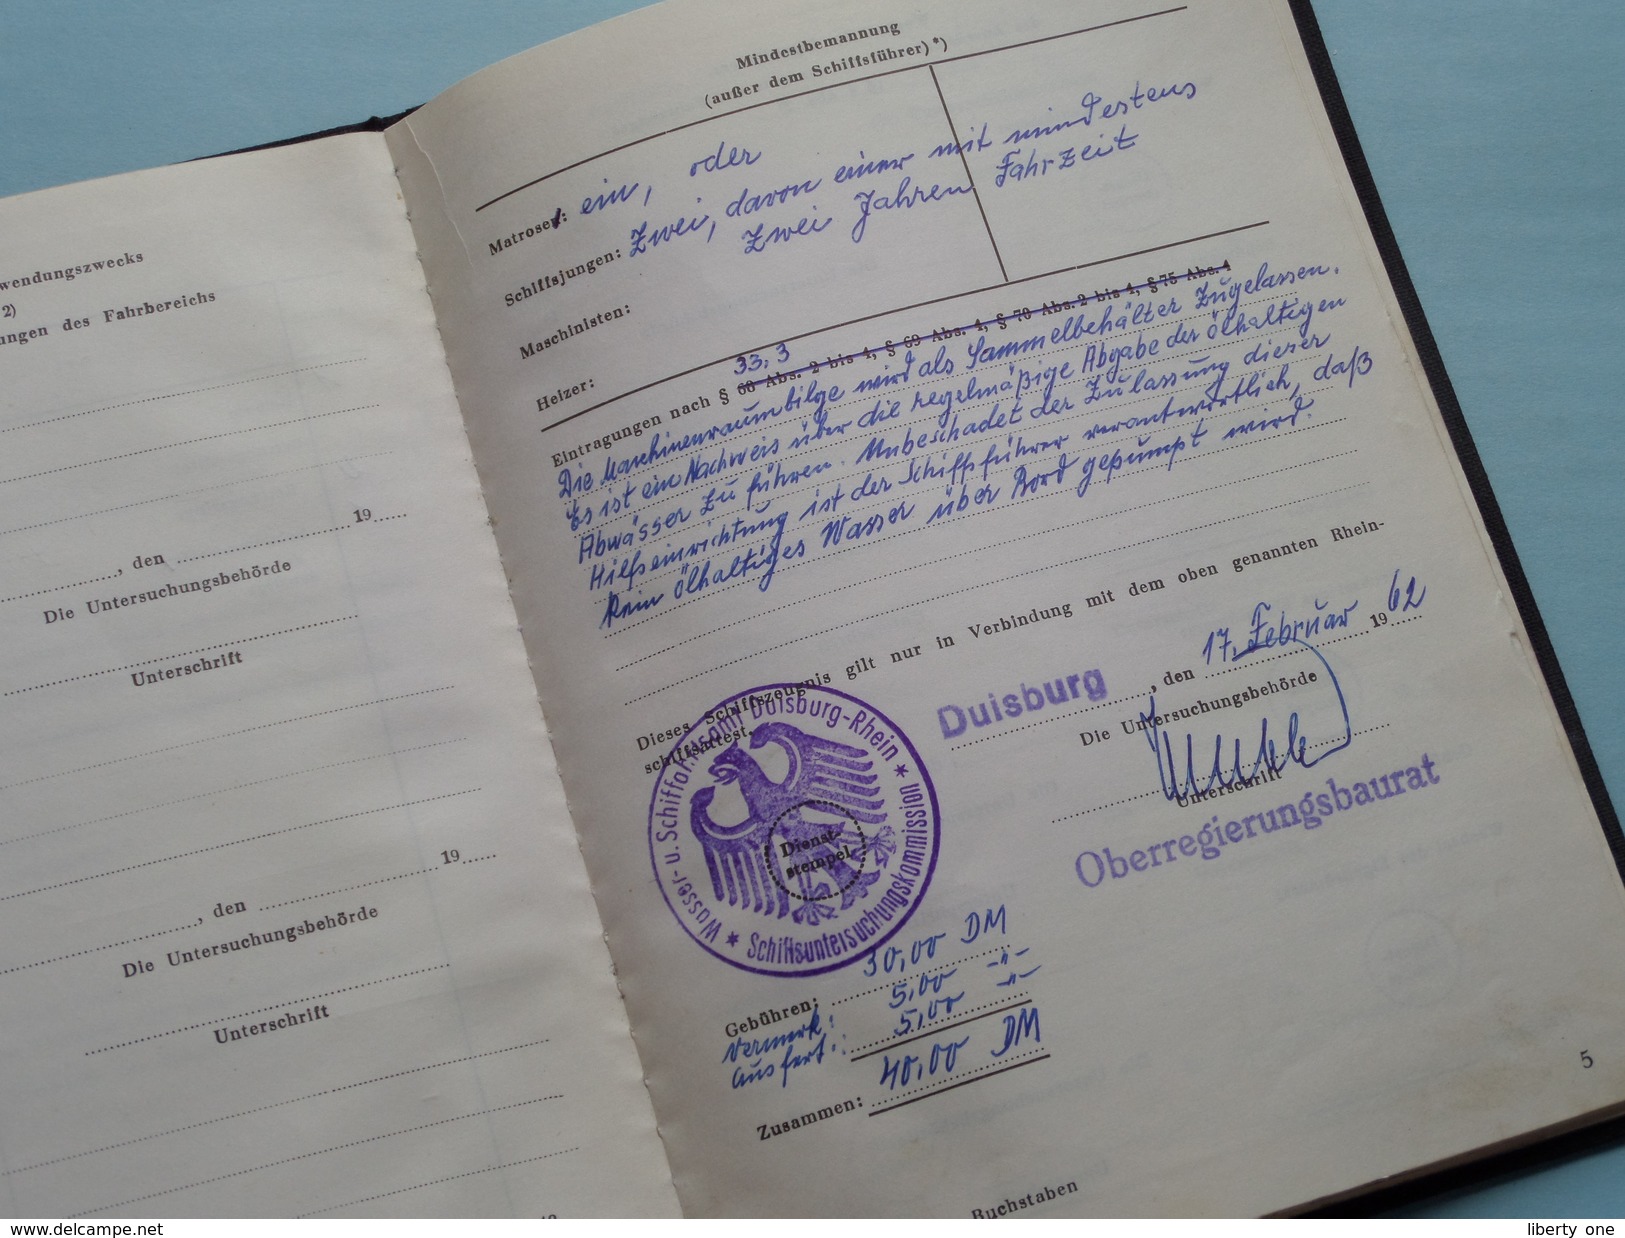 wendungszwecks
2)
ungen des Fahrbereichs
19
, den
Die Untersuchungsbehörde
Unterschrift
19
, den
Die Untersuchungsbehörde
Unterschrift
Mindestbemannung
(außer dem Schiffsführer) *)
Matrosen: ein, oder
Schiffsjungen: Zwei, davon einer mit mindestens
zwei Jahren Fahrzeit
Maschinisten:
Heizer:
33,3
Eintragungen nach § 68 Abs. 2 bis 4, § 69 Abs. 4, § 70 Abs. 2 bis 4, § 75 Abs. 4
Die Maschinenraumbilge wird als Sammelbehälter zugelassen.
Es ist ein Nachweis über die regelmäßige Abgabe der ölhaltigen
Abwässer zu führen. Unbeschadet der Zulassung dieser
Hilfseinrichtung ist der Schiffsführer verantwortlich, daß
kein ölhaltiges Wasser über Bord gepumpt wird.
Dieses Schiffszeugnis gilt nur in Verbindung mit dem oben genannten Rhein-
schiffsattest.
Duisburg, den 17. Februar 1962
Die Untersuchungsbehörde
Unterschrift
Oberregierungsbaurat
Wasser- u. Schiffahrtsamt Duisburg-Rhein
* Schiffsuntersuchungskommission *
Dienst-
stempel
Gebühren: 30,00 DM
Vermerk: 5,00 -"-
Ausfert.: 5,00 -"-
Zusammen: 40,00 DM
5
Buchstaben
www.delcampe.net
liberty one